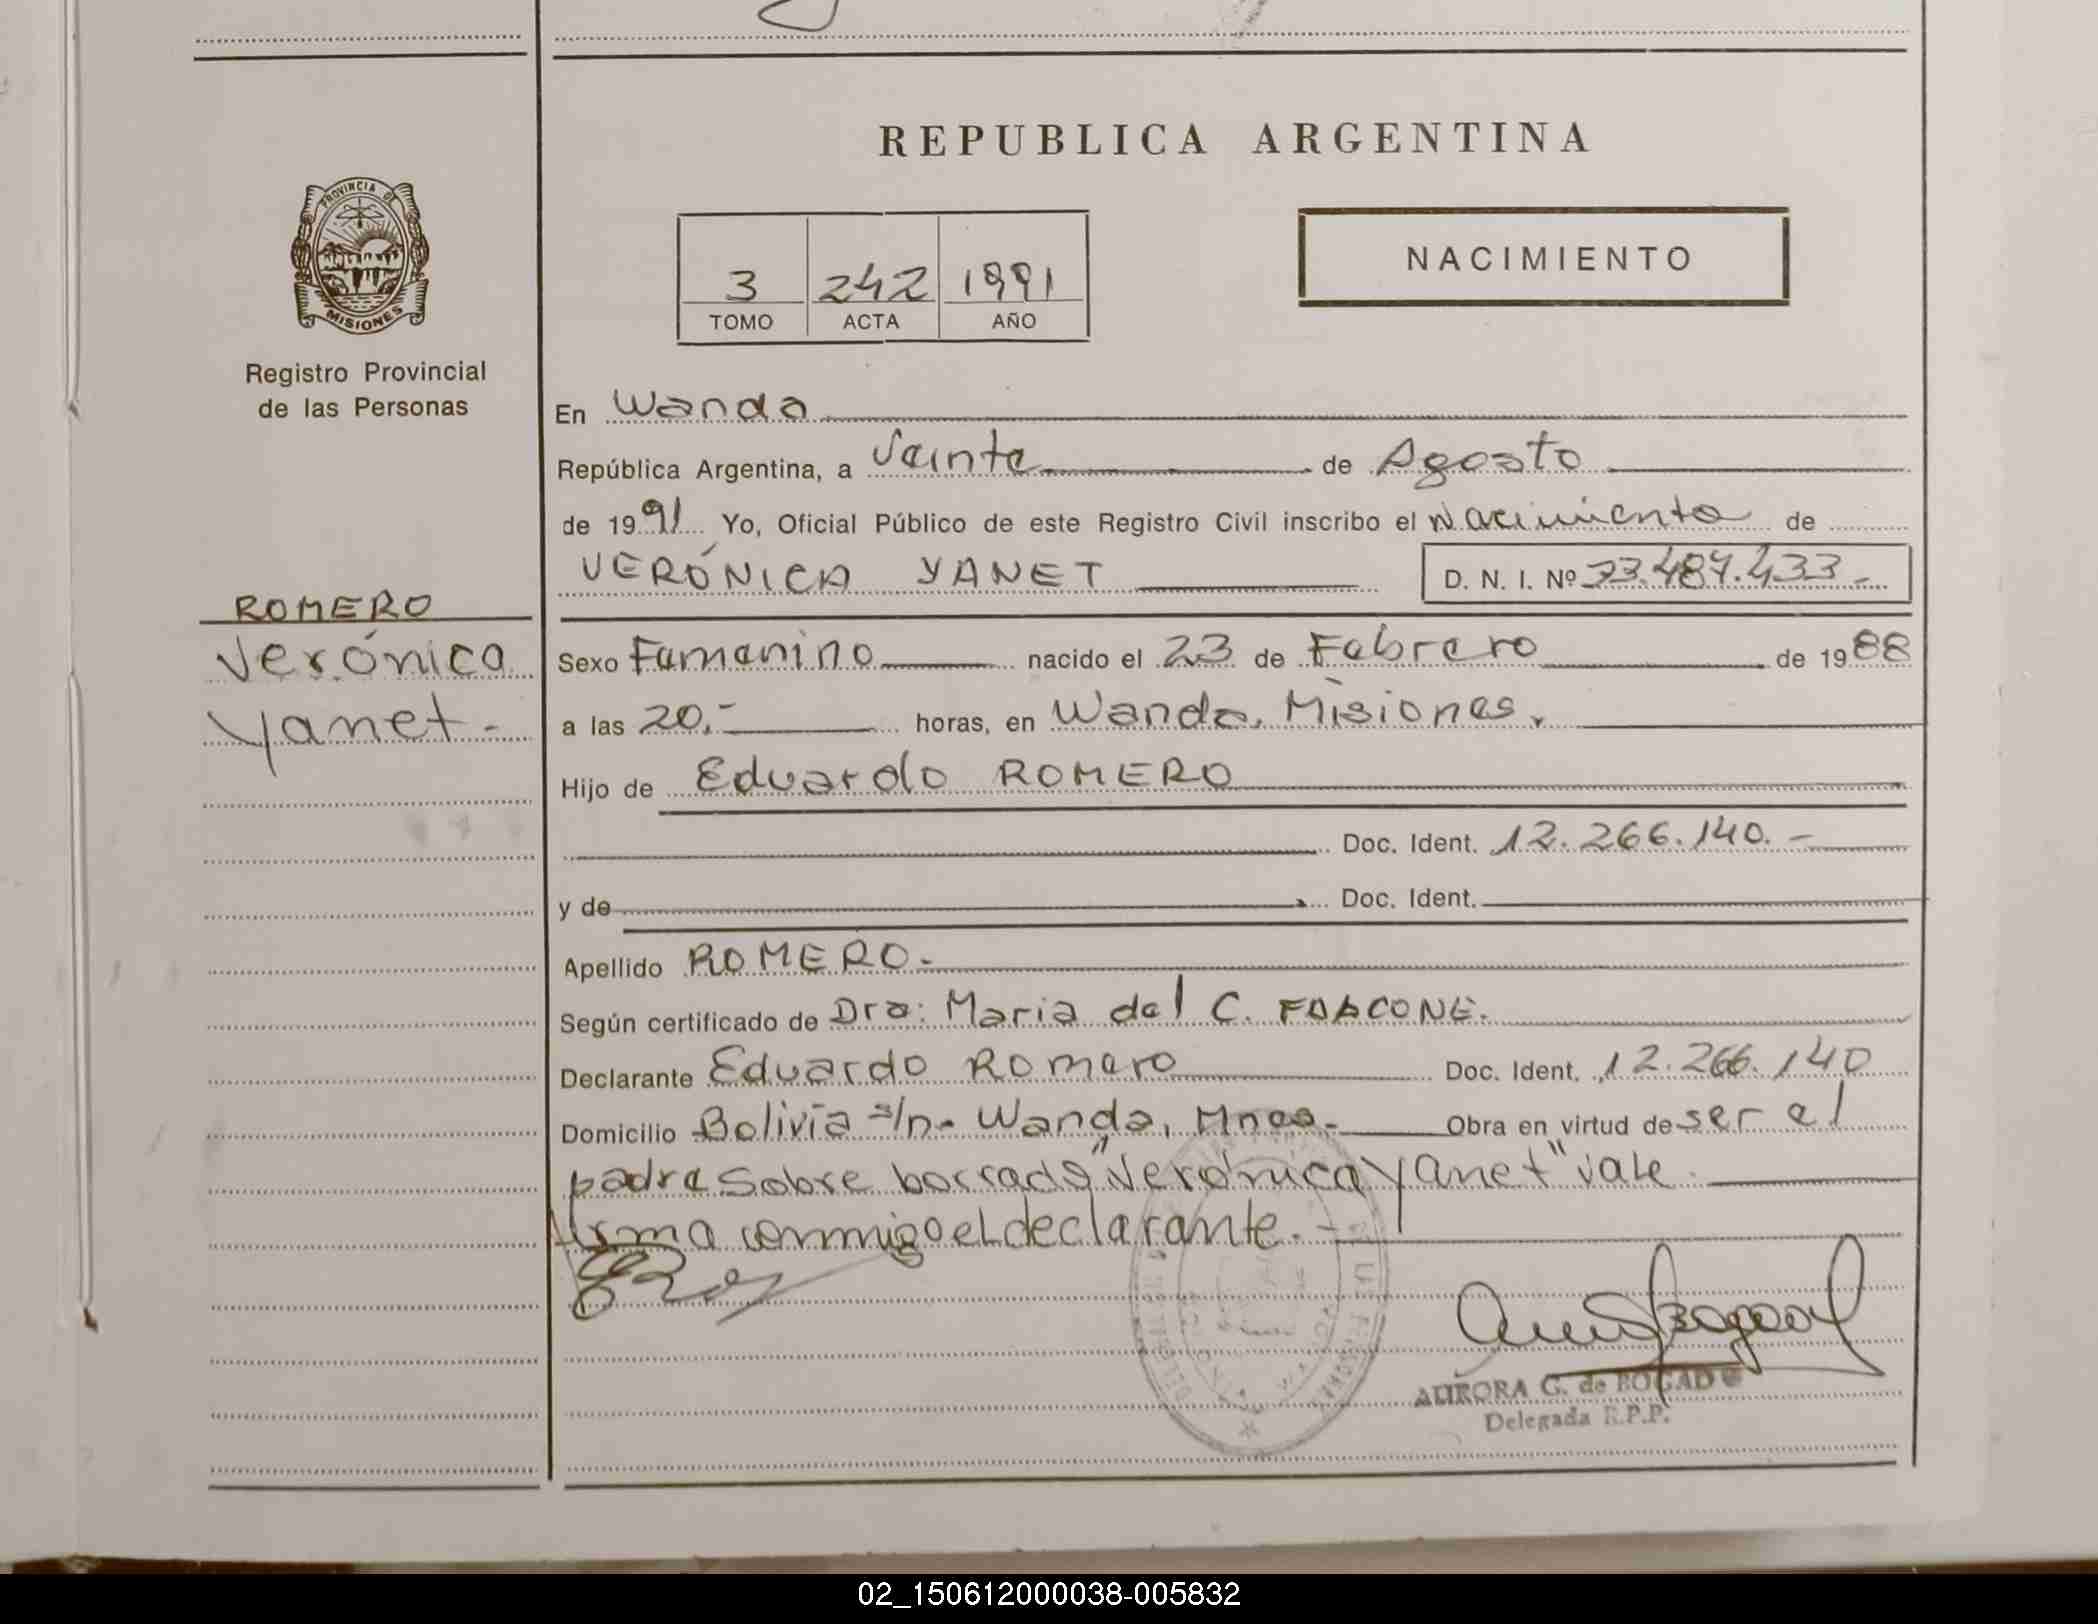 REPUBLICA ARGENTINA
PROVINCIA DE
MISIONES
Registro Provincial
de las Personas
NACIMIENTO
3 242 1991
TOMO ACTA AÑO
En Wanda
República Argentina, a Veinte de Agosto
de 1991 Yo, Oficial Público de este Registro Civil inscribo el Nacimiento de
VERÓNICA YANET D. N. I. Nº 33.487.433.-
ROMERO
Verónica
Yanet.-
Sexo Femenino nacido el 23 de Febrero de 1988
a las 20.- horas, en Wanda, Misiones.
Hijo de Eduardo ROMERO
Doc. Ident. 12.266.140.-
y de Doc. Ident.
Apellido ROMERO.-
Según certificado de Dra: Maria del C.
Declarante Eduardo Romero Doc. Ident. 12.266.140
Domicilio Bolivia s/n.- Wanda, Mnes.- Obra en virtud de ser el
padre sobre borrado "Verónica Yanet" vale
firma conmigo el declarante.-
AURORA G. de BOGADO
Delegada R.P.P.
02_150612000038-005832